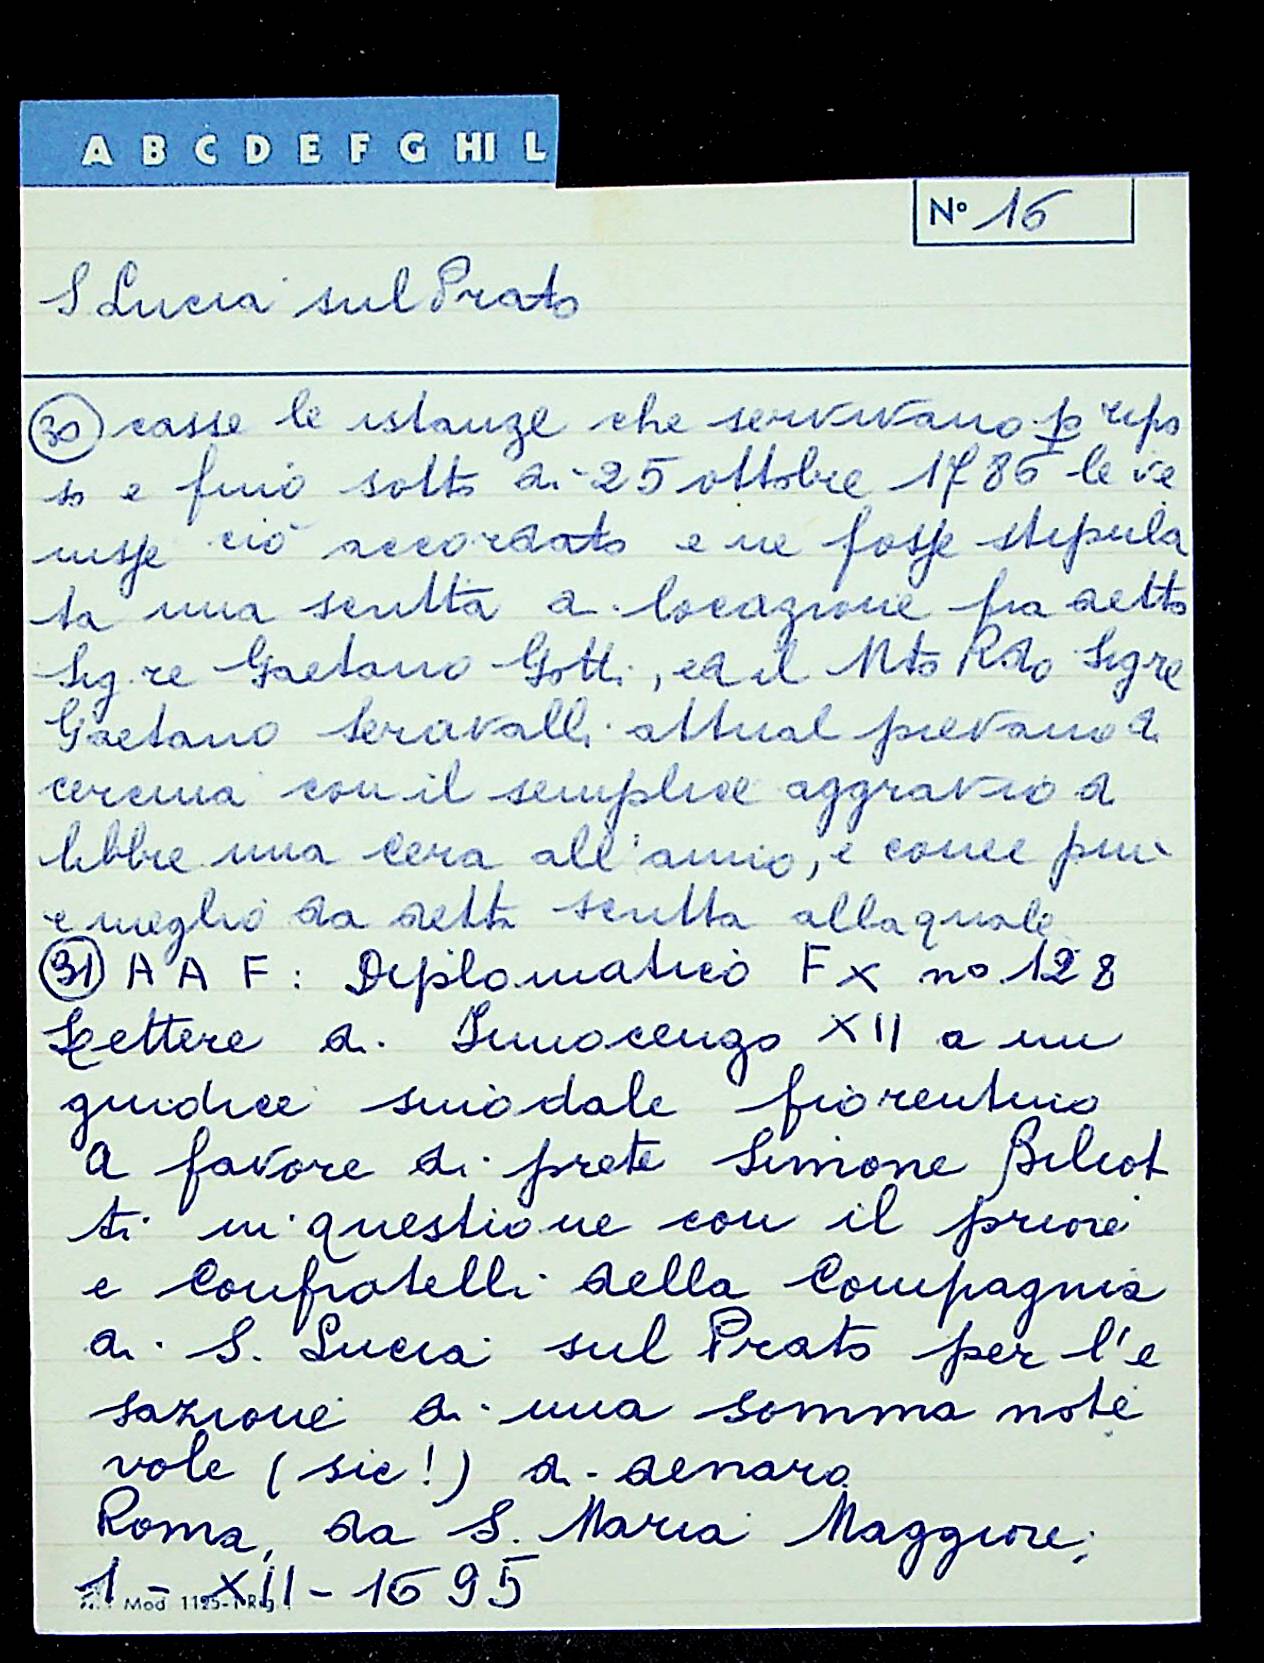 A B C D E F G HI L
N° 16
S. Lucia sul Prato
30 casse le istanze che servivano p ripo
so e fino sotto di 25 ottobre 1786 le ve
nisse ciò accordato e ne fosse stipula
ta una scritta di locazione fra detto
Sig.re Gaetano Gotti, ed il Mto Rdo Sigre
Gaetano Seravalli attual pievano di
cercina con il semplice aggravio di
libbre una cera all'anno, e come più
e meglio da detta scritta alla quale
31 A A F: Diplomatico F X n° 128
Lettere di Innocenzo XII a un
giudice sinodale fiorentino
a favore di prete Simone Biliot
ti in questione con il priore
e Confratelli della Compagnia
di S. Lucia sul Prato per l'e
sazione di una somma note
vole (sic!) di denaro
Roma, da S. Maria Maggiore;
1 - XII - 1695
Mod 1125-1